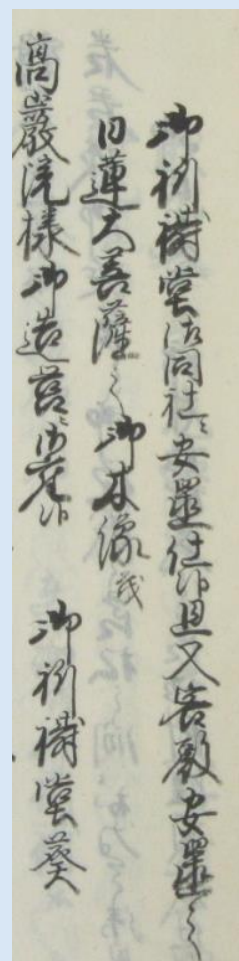 御祈祷堂江同社ニ安置仕候且又客殿安置之
日蓮大菩薩之御木像或
高巌院様御造営ニ御座候　御祈祷堂葵